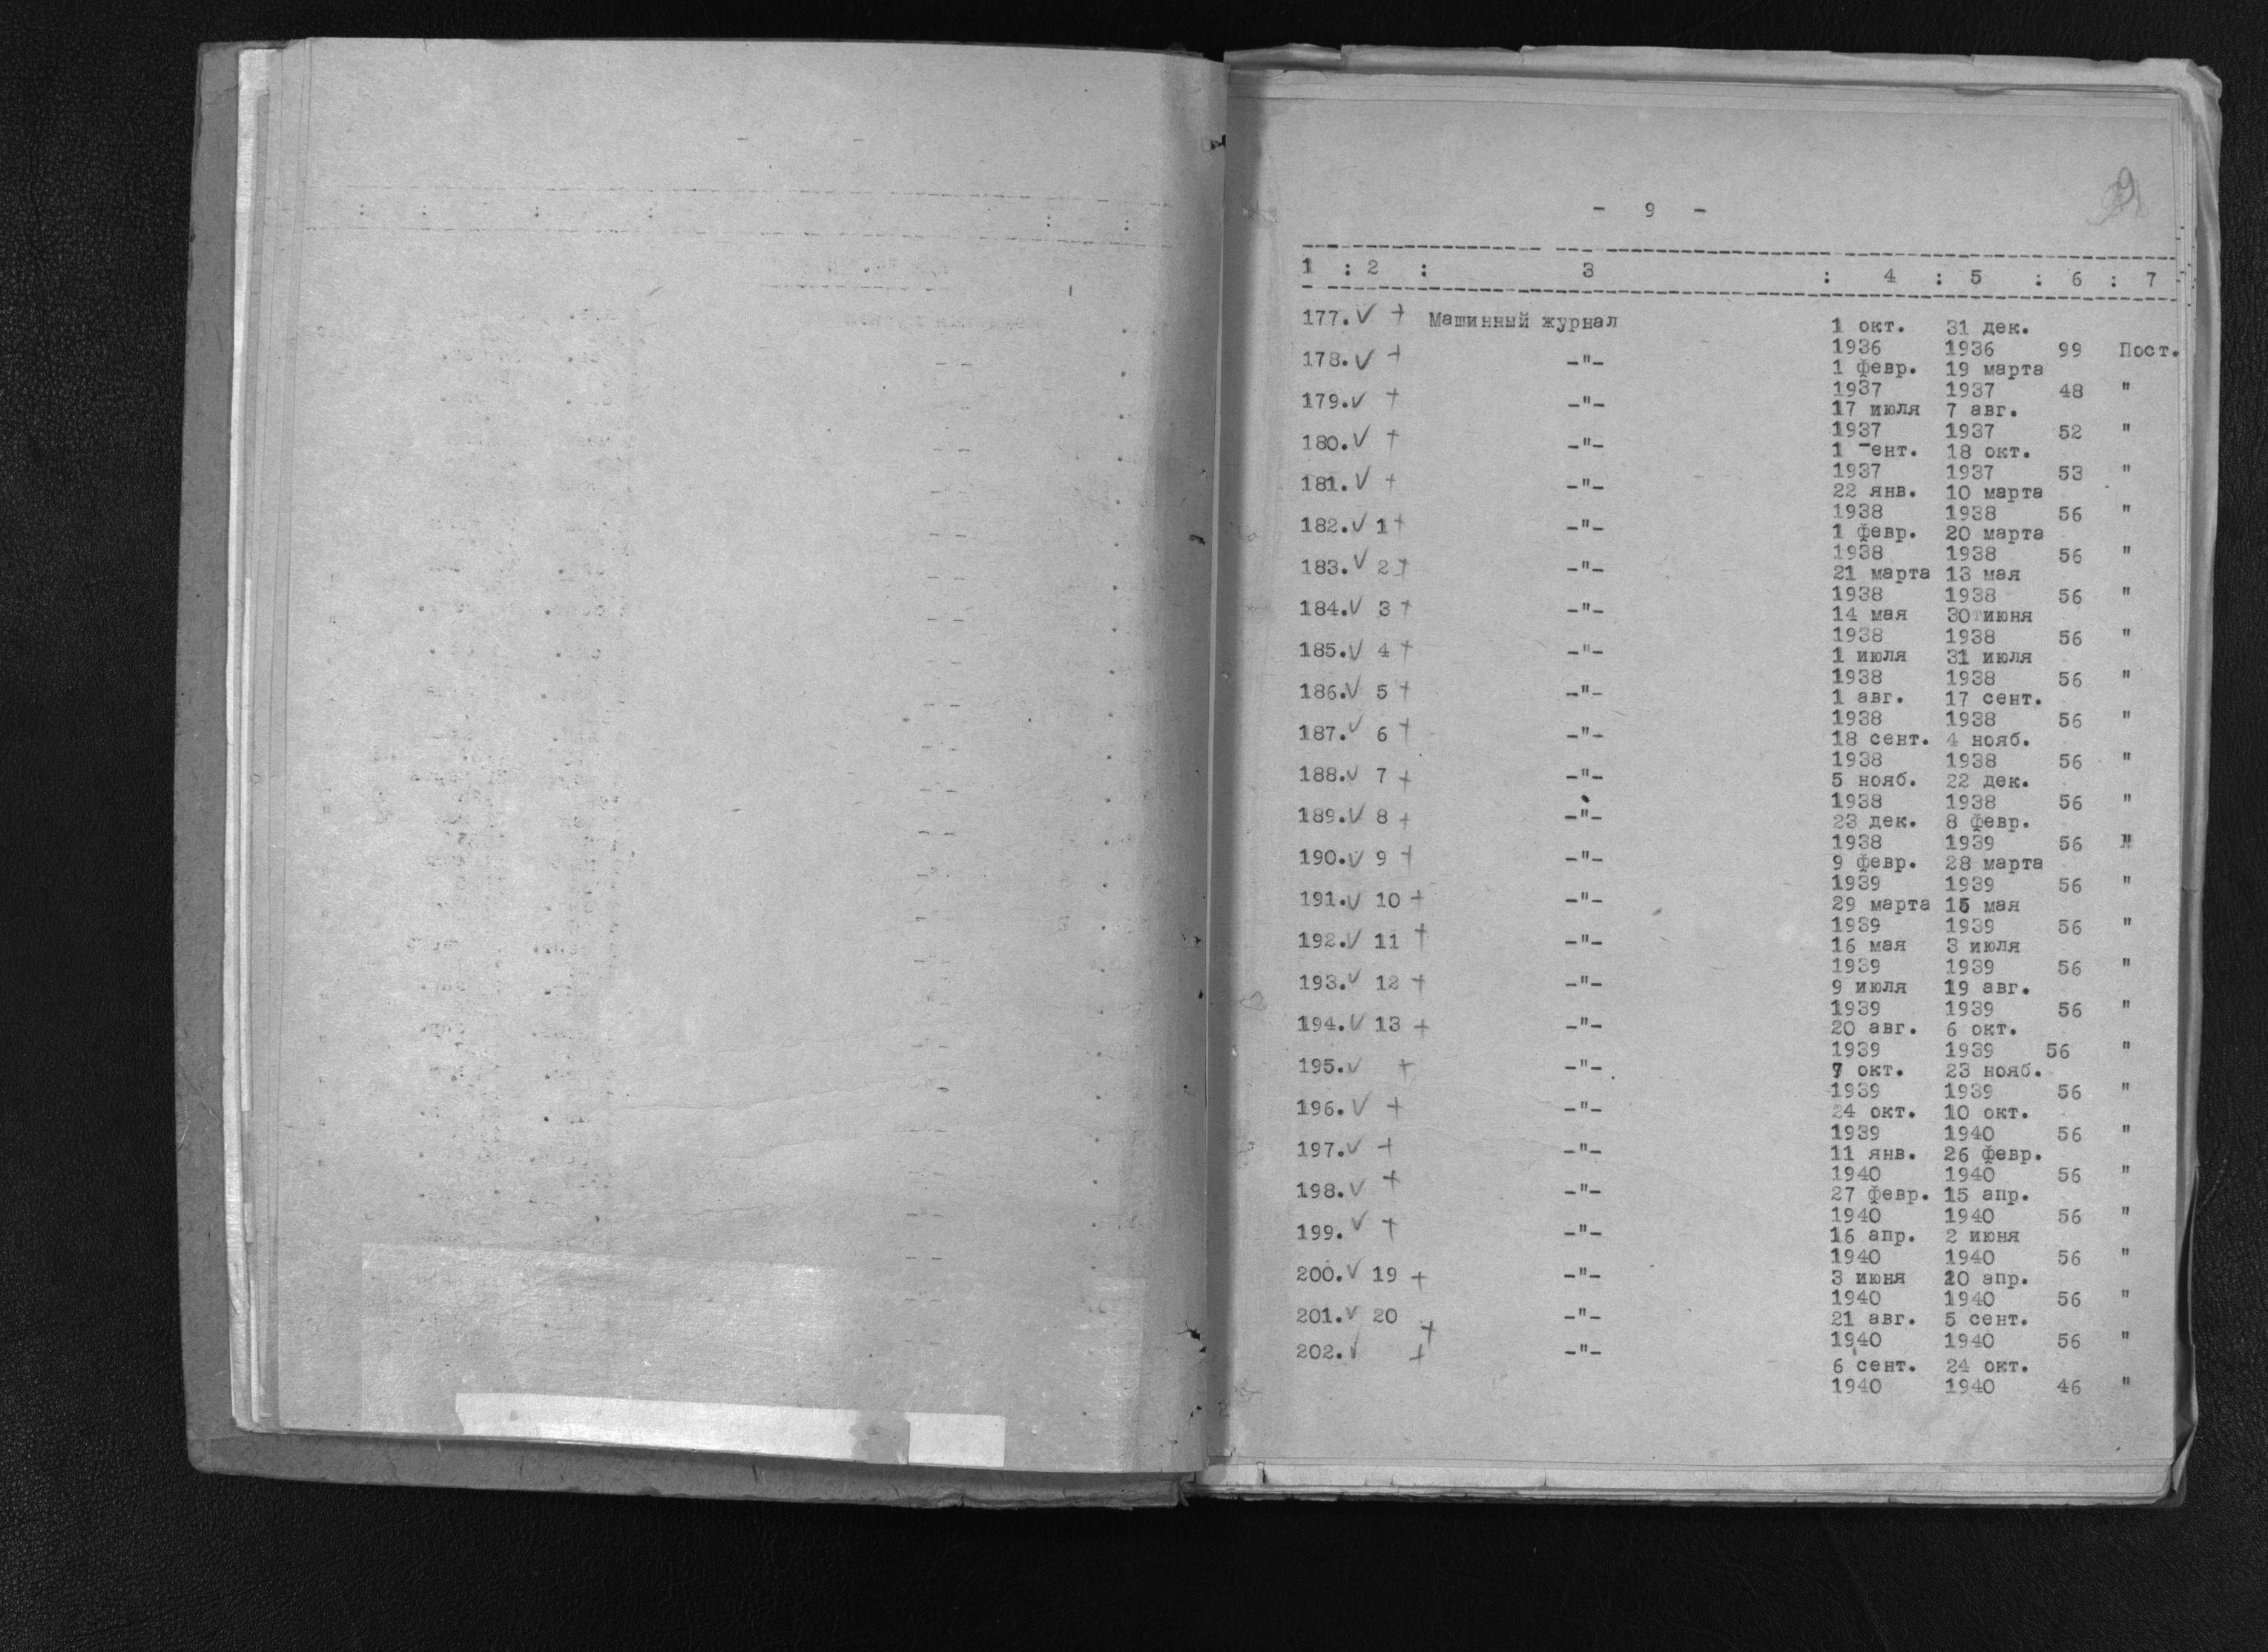 - 9 -
1 : 2 : 3 : 4 : 5 : 6 : 7
177. V + Машинный журнал 1 окт. 31 дек.
1936 1936 99 Пост.
178. V + -"- 1 февр. 19 марта
1937 1937 48 "
179. V + -"- 17 июля 7 авг.
1937 1937 52 "
180. V + -"- 1 ент. 18 окт.
1937 1937 53 "
181. V + -"- 22 янв. 10 марта
1938 1938 56 "
182. V 1 + -"- 1 февр. 20 марта
1938 1938 56 "
183. V 2 + -"- 21 марта 13 мая
1938 1938 56 "
184. V 3 + -"- 14 мая 30 июня
1938 1938 56 "
185. V 4 + -"- 1 июля 31 июля
1938 1938 56 "
186. V 5 + -"- 1 авг. 17 сент.
1938 1938 56 "
187. V 6 + -"- 18 сент. 4 нояб.
1938 1938 56 "
188. V 7 + -"- 5 нояб. 22 дек.
1938 1938 56 "
189. V 8 + -"- 23 дек. 8 февр.
1938 1939 56 "
190. V 9 + -"- 9 февр. 28 марта
1939 1939 56 "
191. V 10 + -"- 29 марта 15 мая
1939 1939 56 "
192. V 11 + -"- 16 мая 3 июля
1939 1939 56 "
193. V 12 + -"- 9 июля 19 авг.
1939 1939 56 "
194. V 13 + -"- 20 авг. 6 окт.
1939 1939 56 "
195. V + -"- 7 окт. 23 нояб.
1939 1939 56 "
196. V + -"- 24 окт. 10 окт.
1939 1940 56 "
197. V + -"- 11 янв. 26 февр.
1940 1940 56 "
198. V + -"- 27 февр. 15 апр.
1940 1940 56 "
199. V + -"- 16 апр. 2 июня
1940 1940 56 "
200. V 19 + -"- 3 июня 20 апр.
1940 1940 56 "
201. V 20 + -"- 21 авг. 5 сент.
1940 1940 56 "
202. V + -"- 6 сент. 24 окт.
1940 1940 46 "